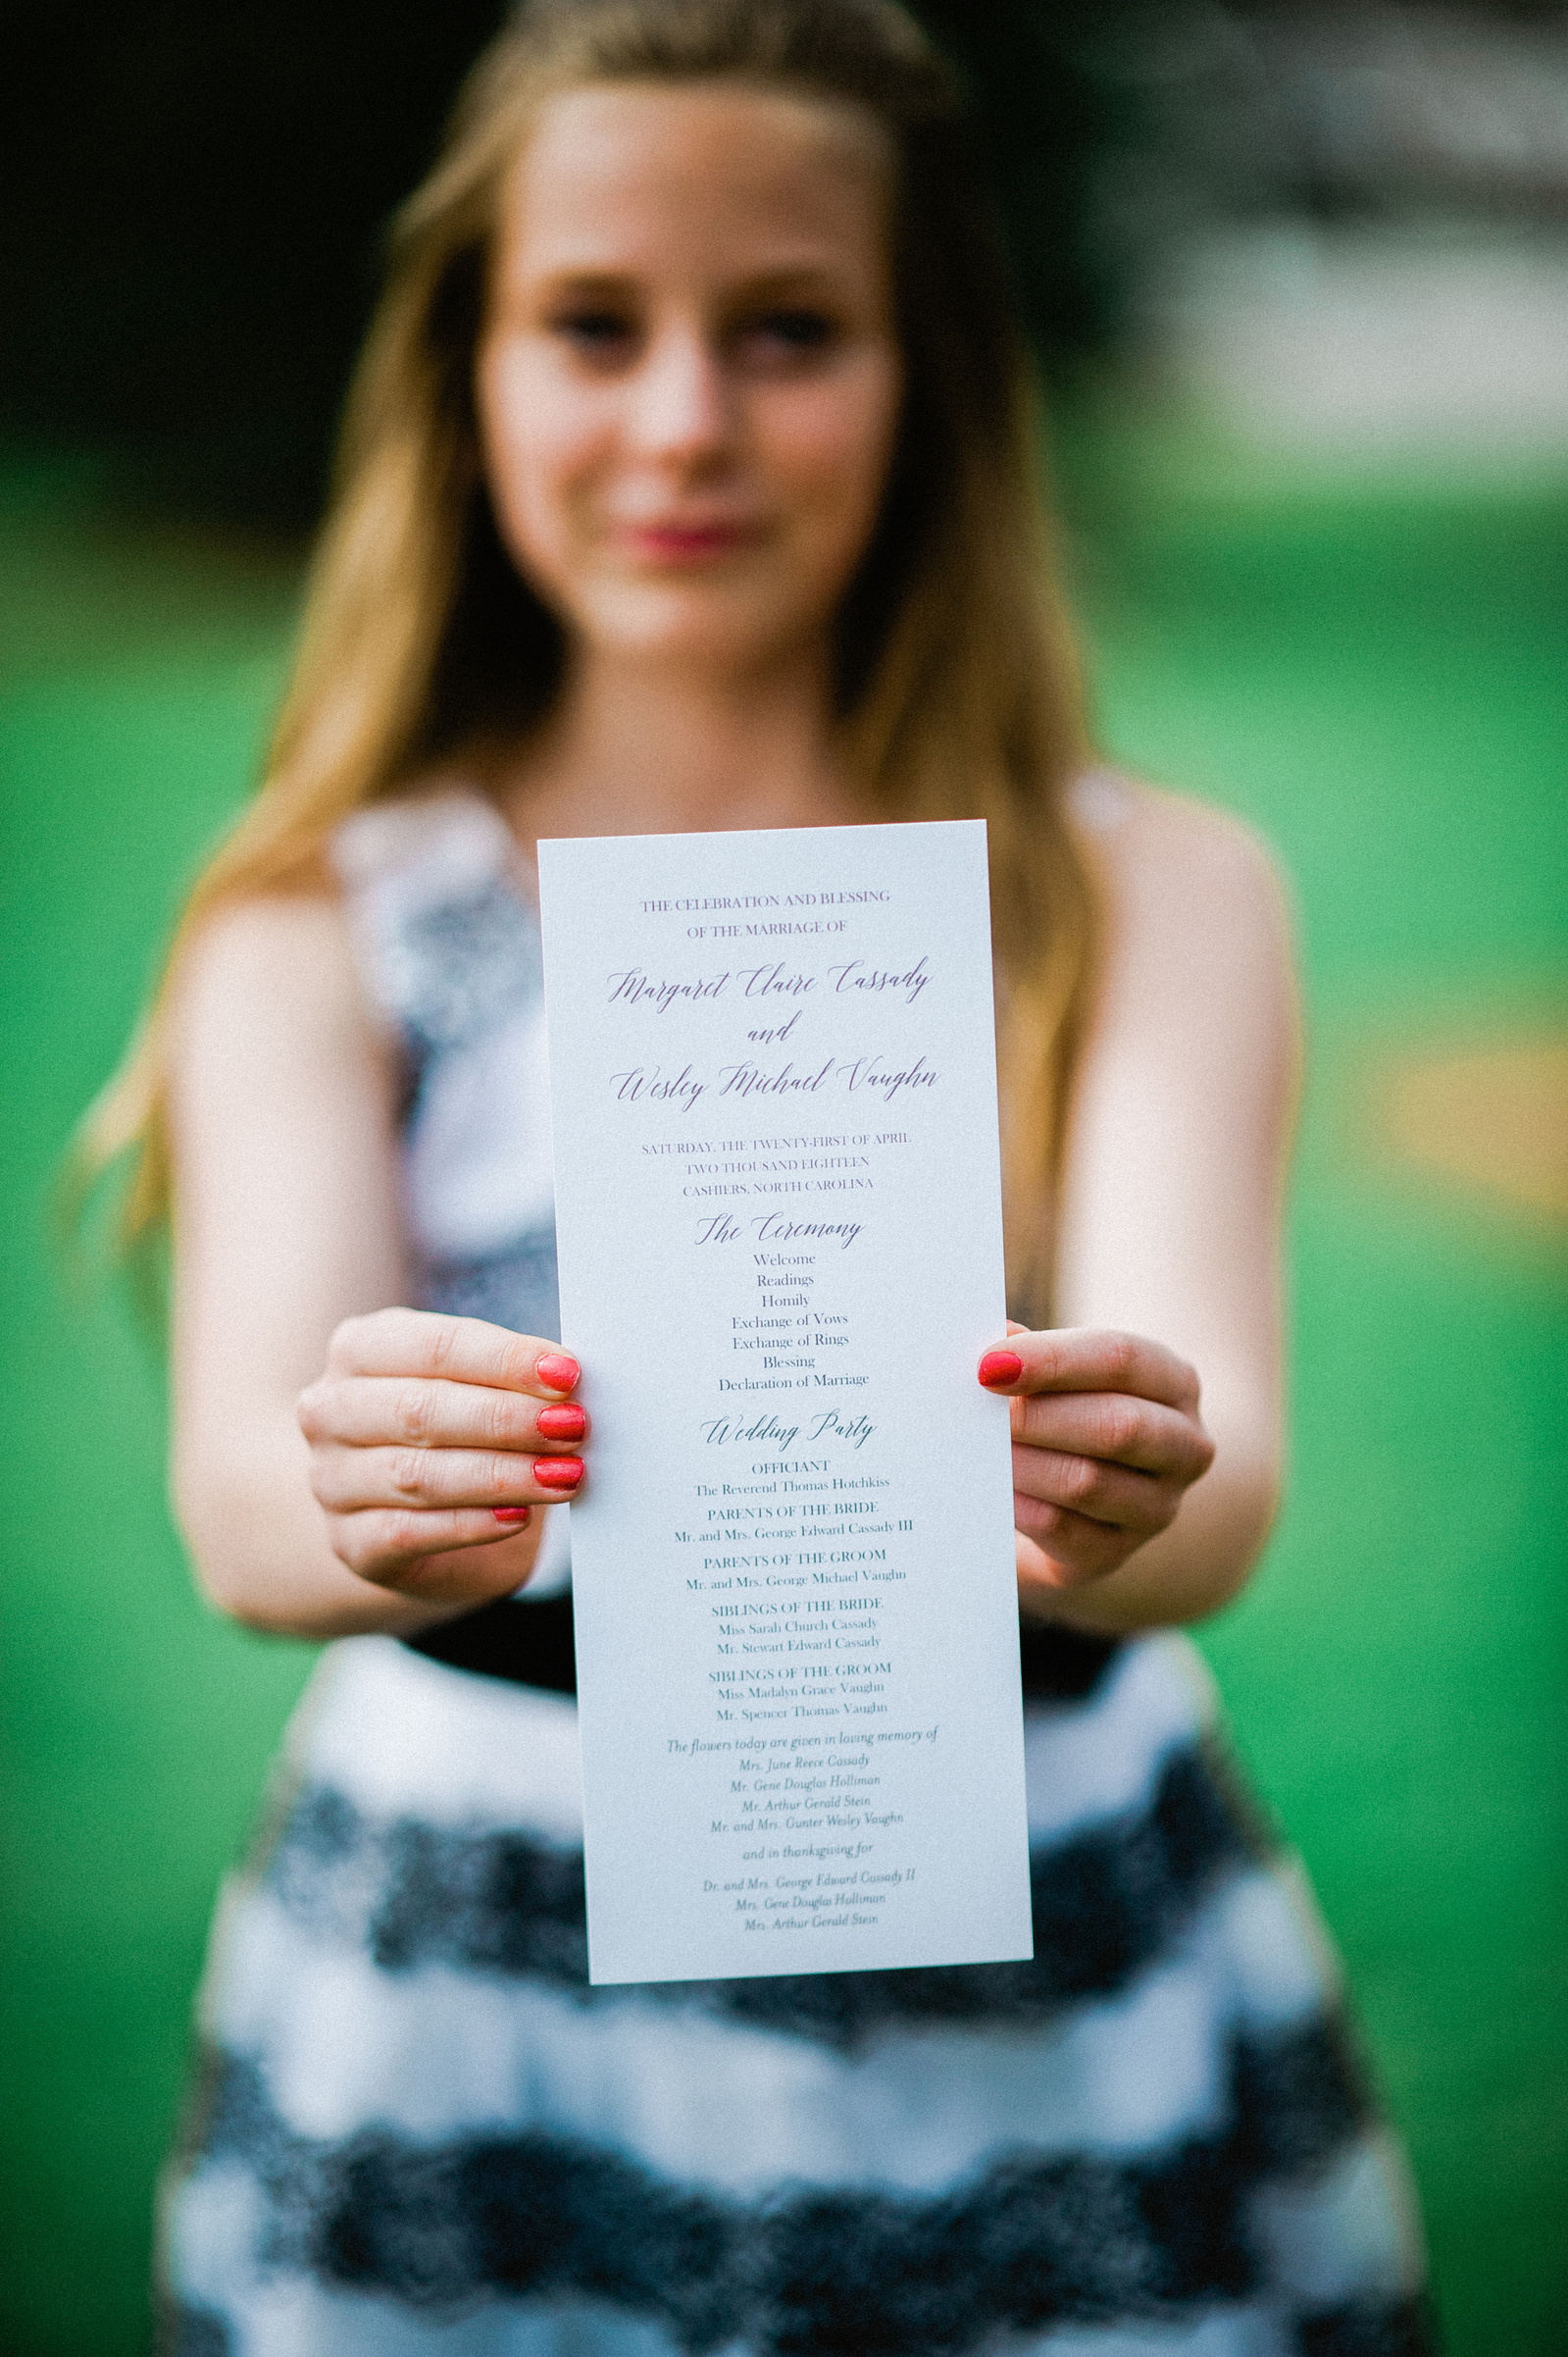 THE CELEBRATION AND BLESSING
OF THE MARRIAGE OF
Margaret Claire Cassady
and
Wesley Michael Vaughn
SATURDAY, THE TWENTY-FIRST OF APRIL
TWO THOUSAND EIGHTEEN
CASHIERS, NORTH CAROLINA
The Ceremony
Welcome
Readings
Homily
Exchange of Vows
Exchange of Rings
Blessing
Declaration of Marriage
Wedding Party
OFFICIANT
The Reverend Thomas Hotchkiss
PARENTS OF THE BRIDE
Mr. and Mrs. George Edward Cassady III
PARENTS OF THE GROOM
Mr. and Mrs. George Michael Vaughn
SIBLINGS OF THE BRIDE
Miss Sarah Church Cassady
Mr. Stewart Edward Cassady
SIBLINGS OF THE GROOM
Miss Madalyn Grace Vaughn
Mr. Spencer Thomas Vaughn
The flowers today are given in loving memory of
Mrs. June Reece Cassady
Mr. Gene Douglas Holliman
Mr. Arthur Gerald Stein
Mr. and Mrs. Gunter Wesley Vaughn
and in thanksgiving for
Dr. and Mrs. George Edward Cassady II
Mrs. Gene Douglas Holliman
Mrs. Arthur Gerald Stein